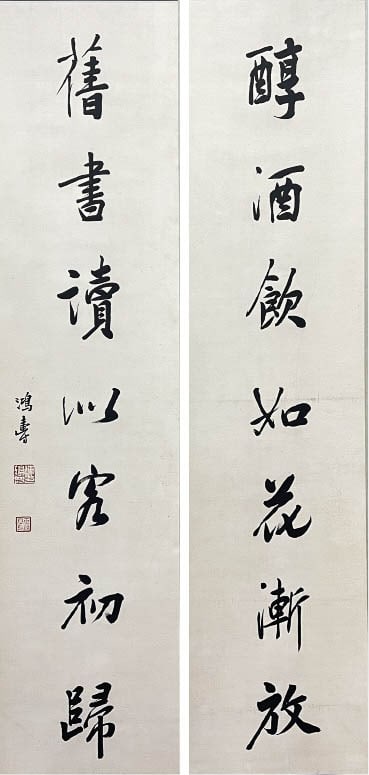 醇酒飲如花漸放
舊書讀似客初歸
鴻壽